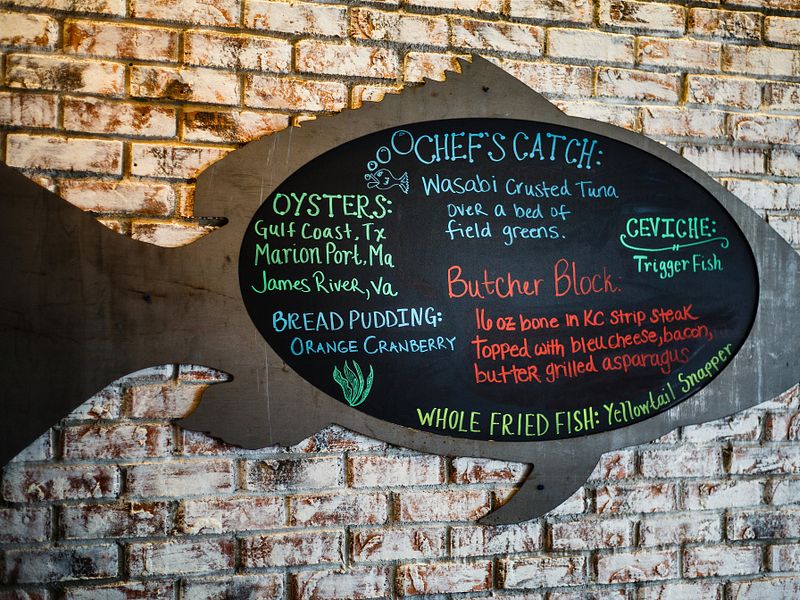 CHEF'S CATCH:
Wasabi Crusted Tuna
over a bed of
field greens.
OYSTERS:
Gulf Coast, Tx
Marion Port, Ma
James River, Va
CEVICHE:
Trigger Fish
Butcher Block:
16 oz bone in KC strip steak
topped with bleu cheese, bacon,
butter grilled asparagus
BREAD PUDDING:
ORANGE CRANBERRY
WHOLE FRIED FISH: Yellowtail Snapper